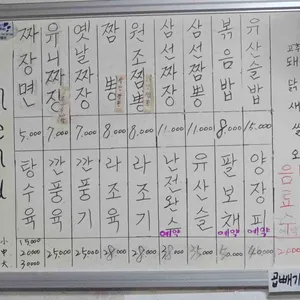 짜장면 5.000
유니짜장 7.000
옛날짜장 7.000
짬뽕 8.000
원조짬뽕 8.000
삼선짜장 11.000
삼선짬뽕 11.000
볶음밥 8.000
유산슬밥 15.000
탕수육
小 15000
中 20000
大 30000
깐풍육 25000
깐풍기 25000
라조육 28000
라조기 28000
난전완스 예약 38000
유산슬 35000
팔보채 예약
양장피 예약 40000
음료수
2000
곱빼기